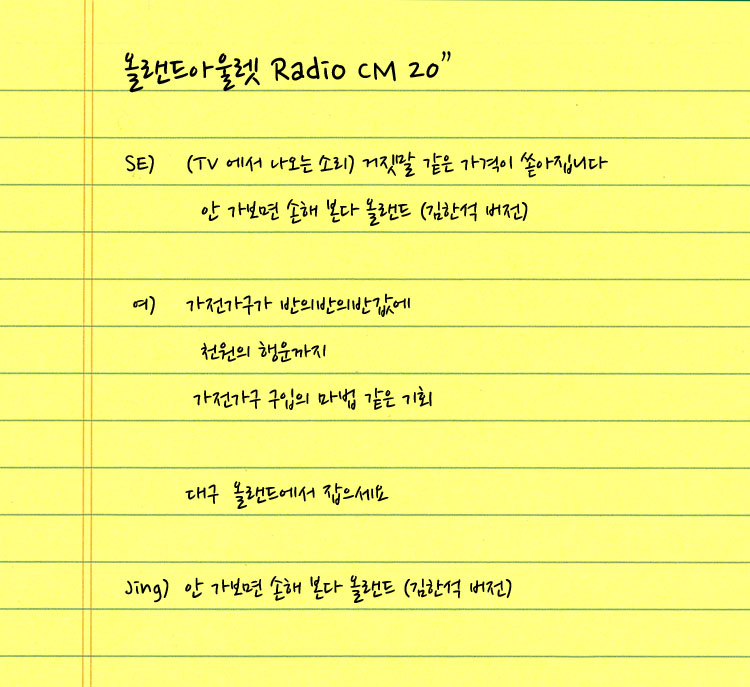 올랜드아울렛 Radio CM 20"
SE) (TV 에서 나오는 소리) 거짓말 같은 가격이 쏟아집니다
안 가보면 손해 본다 올랜드 (김한석 버전)
여) 가전가구가 반의반의반값에
천원의 행운까지
가전가구 구입의 마법 같은 기회
대구 올랜드에서 잡으세요
Jing) 안 가보면 손해 본다 올랜드 (김한석 버전)